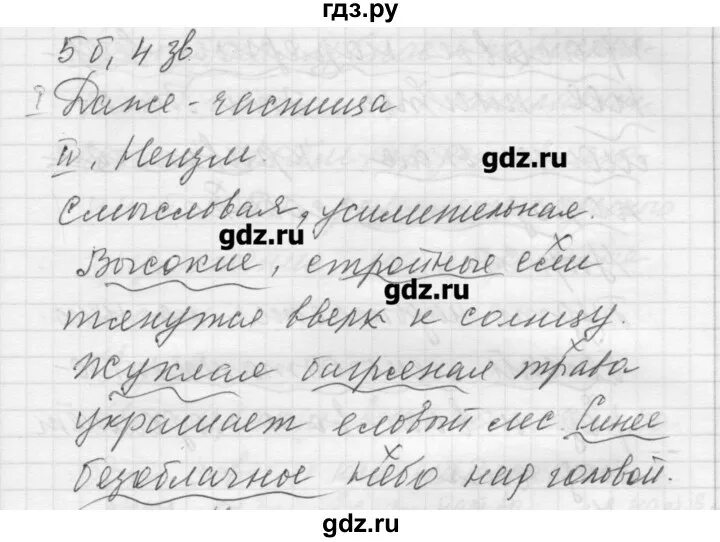 гдз.ру
5б, 4 зв
I Даже - частица
IV. Неизм.
gdz.ru
смысловая, усилительная.
gdz.ru
Высокие, стройные ели
gdz.ru
тянутся вверх к солнцу.
Жухлая багряная трава
украшает еловый лес. Синее
безоблачное небо над головой.
gdz.ru